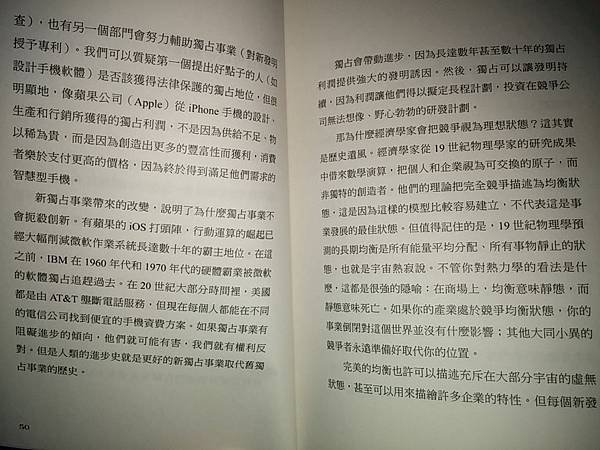 查），也有另一個部門會努力輔助獨占事業（對新發明
授予專利）。我們可以質疑第一個提出好點子的人（如
設計手機軟體）是否該獲得法律保護的獨占地位，但很
明顯地，像蘋果公司（Apple）從 iPhone 手機的設計、
生產和行銷所獲得的獨占利潤，不是因為供給不足、物
以稀為貴，而是因為創造出更多的豐富性而獲利，消費
者樂於支付更高的價格，因為終於得到滿足他們需求的
智慧型手機。
新獨占事業帶來的改變，說明了為什麼獨占事業不
會扼殺創新。有蘋果的 iOS 打頭陣，行動運算的崛起已
經大幅削減微軟作業系統長達數十年的霸主地位。在這
之前，IBM 在 1960 年代和 1970 年代的硬體霸業被微軟
的軟體獨占追趕過去。在 20 世紀大部分時間裡，美國
都是由 AT&T 壟斷電話服務，但現在每個人都能在不同
的電信公司找到便宜的手機資費方案。如果獨占事業有
阻礙進步的傾向，他們就可能有害，我們就有權利反
對。但是人類的進步史就是更好的新獨占事業取代舊獨
占事業的歷史。
50
獨占會帶動進步，因為長達數年甚至數十年的獨占
利潤提供強大的發明誘因。然後，獨占可以讓發明持
續，因為利潤讓他們得以擬定長程計劃，投資在競爭公
司無法想像、野心勃勃的研發計劃。
那為什麼經濟學家會把競爭視為理想狀態？這其實
是歷史遺風。經濟學家從 19 世紀物理學家的研究成果
中借來數學演算，把個人和企業視為可交換的原子，而
非獨特的創造者。他們的理論把完全競爭描述為均衡狀
態，這是因為這樣的模型比較容易建立，不代表這是事
業發展的最佳狀態。但值得記住的是，19 世紀物理學預
測的長期均衡是所有能量平均分配、所有事物靜止的狀
態，也就是宇宙熱寂說。不管你對熱力學的看法是什
麼，這都是很強的隱喻：在商場上，均衡意味靜態，而
靜態意味死亡。如果你的產業處於競爭均衡狀態，你的
事業倒閉對這個世界並沒有什麼影響；其他大同小異的
競爭者永遠準備好取代你的位置。
完美的均衡也許可以描述充斥在大部分宇宙的虛無
狀態，甚至可以用來描繪許多企業的特性。但每個新發